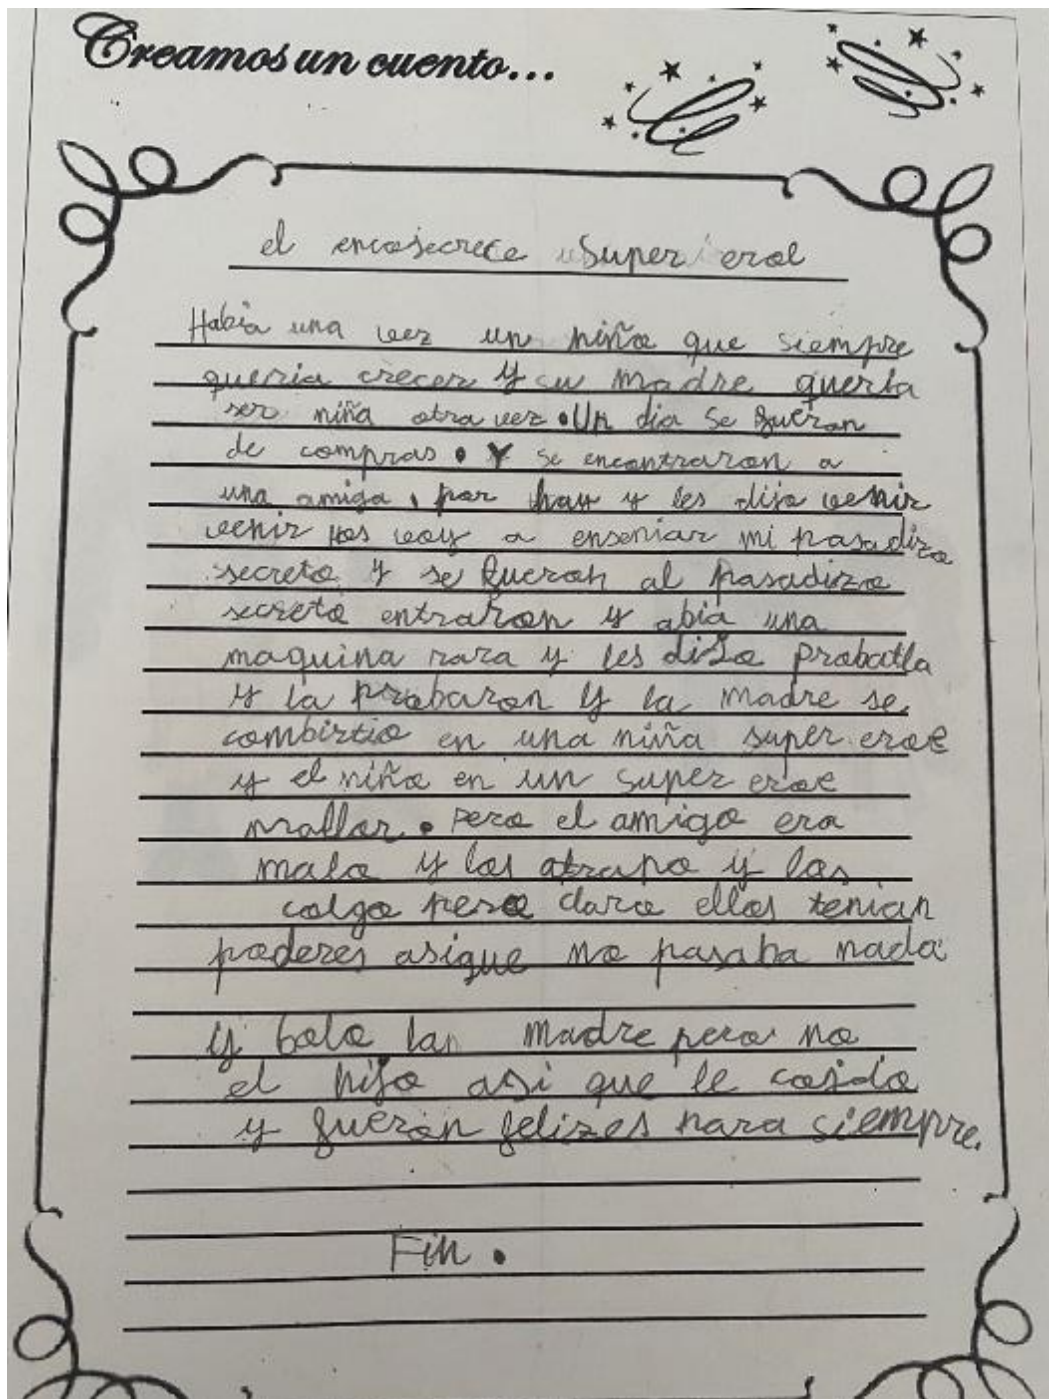 Creamos un cuento...
el encosecrece super eroe
Habia una vez un niño que siempre
queria crecer y su madre queria
ser niña otra vez. Un dia se fueron
de compras. Y se encontraron a
una amiga, por hay y les dijo venir
venir hos voy a enseniar mi pasadizo
secreto y se fueron al pasadizo
secreto entraron y abia una
maquina rara y les dijo probatla
y la probaron y la madre se
combirtio en una niña super eroe
y el niño en un super eroe
mallor. Pero el amigo era
malo y los atrapo y los
colgo pero claro ellos tenian
poderes asique no pasaba nada
y bolo la madre pero no
el hijo asi que le cojio
y fueron felizes para siempre.
Fin.